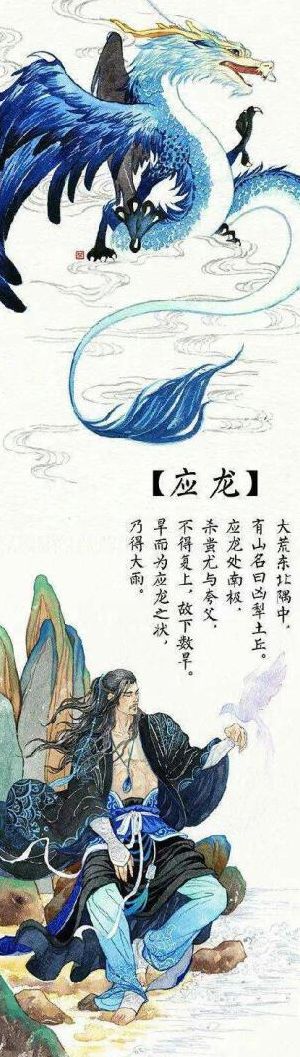 【应龙】
大荒东北隅中，
有山名曰凶犁土丘。
应龙处南极，
杀蚩尤与夸父，
不得复上，故下数旱。
旱而为应龙之状，
乃得大雨。